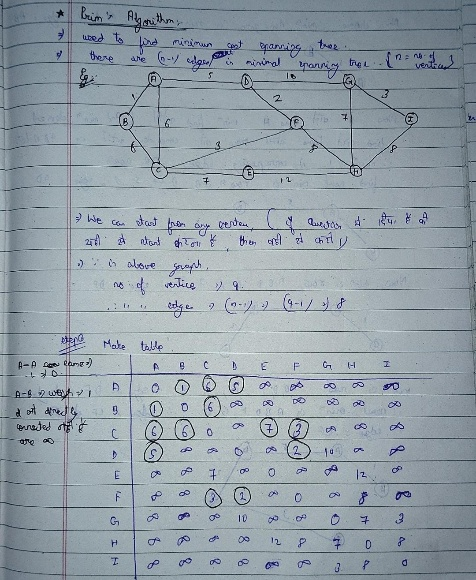 * Prim's Algorithm:
⇒ used to find minimum cost spanning tree.
⇒ there are (n-1) edges in minimal spanning tree. {n = no. of vertices}
Eg:
A 5 D 10 G
1 2 3
B 6 F 7 I
6 3 8 8
C 7 E 12 H
⇒ We can start from any vertex, ( if question में दिया है की
वही से start करना है, then वही से करो।)
⇒ ∵ in above graph,
no of vertice ⇒ 9
∴ " " edges ⇒ (n-1) ⇒ (9-1) ⇒ 8
step① Make table
A-A same ⇒
∴ 0
A-B ⇒ weight ⇒ 1
directly
connected
are ∞
A B C D E F G H I
A 0 1 6 5 ∞ ∞ ∞ ∞ ∞
B 1 0 6 ∞ ∞ ∞ ∞ ∞ ∞
C 6 6 0 ∞ 7 3 ∞ ∞ ∞
D 5 ∞ ∞ 0 ∞ 2 10 ∞ ∞
E ∞ ∞ 7 ∞ 0 ∞ ∞ 12 ∞
F ∞ ∞ 3 2 ∞ 0 ∞ 8 ∞
G ∞ ∞ ∞ 10 ∞ ∞ 0 7 3
H ∞ ∞ ∞ ∞ 12 8 7 0 8
I ∞ ∞ ∞ ∞ ∞ ∞ 3 8 0